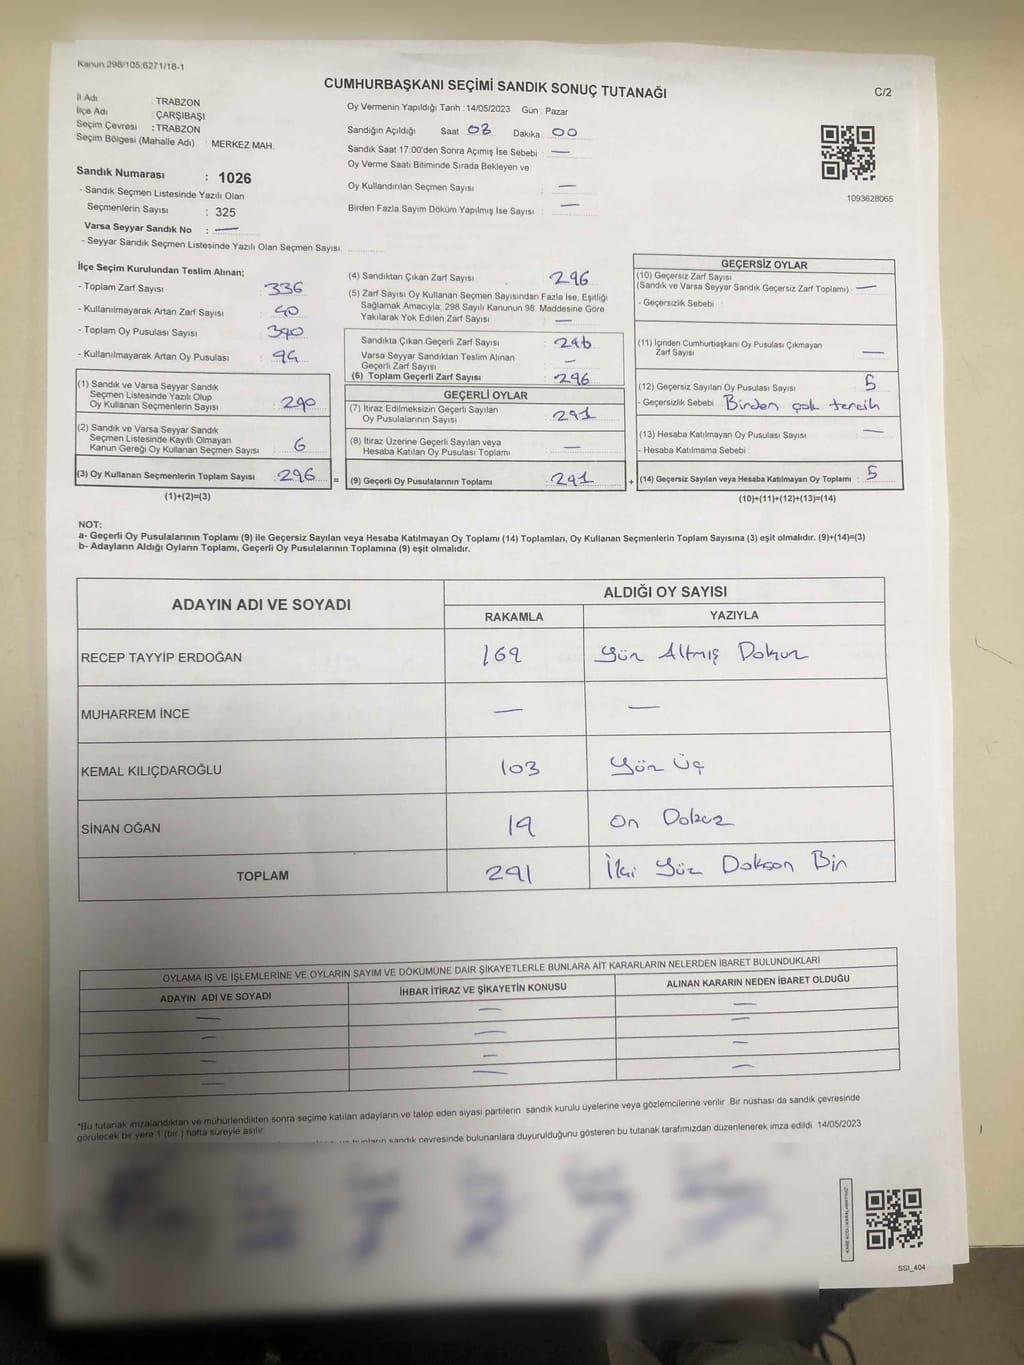 Kanun 298/105,6271/18-1
CUMHURBAŞKANI SEÇİMİ SANDIK SONUÇ TUTANAĞI
C/2
İl Adı : TRABZON
İlçe Adı : ÇARŞIBAŞI
Seçim Çevresi : TRABZON
Seçim Bölgesi (Mahalle Adı) : MERKEZ MAH.
Oy Vermenin Yapıldığı Tarih :14/05/2023 Gün : Pazar
Sandığın Açıldığı Saat 08 Dakika : 00
Sandık Saat 17:00'den Sonra Açımış İse Sebebi : —
Oy Verme Saati Bitiminde Sırada Bekleyen ve
Oy Kullandırılan Seçmen Sayısı —
Birden Fazla Sayım Döküm Yapılmış İse Sayısı : —
1093628065
Sandık Numarası : 1026
- Sandık Seçmen Listesinde Yazılı Olan
Seçmenlerin Sayısı : 325
Varsa Seyyar Sandık No : —
- Seyyar Sandık Seçmen Listesinde Yazılı Olan Seçmen Sayısı:
İlçe Seçim Kurulundan Teslim Alınan;
- Toplam Zarf Sayısı : 336
- Kullanılmayarak Artan Zarf Sayısı : 40
- Toplam Oy Pusulası Sayısı : 390
- Kullanılmayarak Artan Oy Pusulası : 94
(1) Sandık ve Varsa Seyyar Sandık
Seçmen Listesinde Yazılı Olup
Oy Kullanan Seçmenlerin Sayısı : 290
(2) Sandık ve Varsa Seyyar Sandık
Seçmen Listesinde Kayıtlı Olmayan
Kanun Gereği Oy Kullanan Seçmen Sayısı : 6
(3) Oy Kullanan Seçmenlerin Toplam Sayısı : 296
(1)+(2)=(3)
(4) Sandıktan Çıkan Zarf Sayısı : 296
(5) Zarf Sayısı Oy Kullanan Seçmen Sayısından Fazla İse, Eşitliği
Sağlamak Amacıyla; 298 Sayılı Kanunun 98. Maddesine Göre
Yakılarak Yok Edilen Zarf Sayısı : —
Sandıkta Çıkan Geçerli Zarf Sayısı : 296
Varsa Seyyar Sandıktan Teslim Alınan
Geçerli Zarf Sayısı : —
(6) Toplam Geçerli Zarf Sayısı : 296
GEÇERLİ OYLAR
(7) İtiraz Edilmeksizin Geçerli Sayılan
Oy Pusulalarının Sayısı : 291
(8) İtiraz Üzerine Geçerli Sayılan veya
Hesaba Katılan Oy Pusulası Toplamı : —
= (9) Geçerli Oy Pusulalarının Toplamı : 291
GEÇERSİZ OYLAR
(10) Geçersiz Zarf Sayısı
(Sandık ve Varsa Seyyar Sandık Geçersiz Zarf Toplamı) : —
- Geçersizlik Sebebi :
(11) İçinden Cumhurbaşkanı Oy Pusulası Çıkmayan
Zarf Sayısı : —
(12) Geçersiz Sayılan Oy Pusulası Sayısı : 5
- Geçersizlik Sebebi : Birden çok tercih
(13) Hesaba Katılmayan Oy Pusulası Sayısı : —
- Hesaba Katılmama Sebebi :
+ (14) Geçersiz Sayılan veya Hesaba Katılmayan Oy Toplamı : 5
(10)+(11)+(12)+(13)=(14)
NOT:
a- Geçerli Oy Pusulalarının Toplamı (9) ile Geçersiz Sayılan veya Hesaba Katılmayan Oy Toplamı (14) Toplamları, Oy Kullanan Seçmenlerin Toplam Sayısına (3) eşit olmalıdır. (9)+(14)=(3)
b- Adayların Aldığı Oyların Toplamı, Geçerli Oy Pusulalarının Toplamına (9) eşit olmalıdır.
ADAYIN ADI VE SOYADI
ALDIĞI OY SAYISI
RAKAMLA YAZIYLA
RECEP TAYYİP ERDOĞAN 169 Yüz Altmış Dokuz
MUHARREM İNCE — —
KEMAL KILIÇDAROĞLU 103 Yüz Üç
SİNAN OĞAN 19 On Dokuz
TOPLAM 291 İki Yüz Doksan Bir
OYLAMA İŞ VE İŞLEMLERİNE VE OYLARIN SAYIM VE DÖKÜMÜNE DAİR ŞİKAYETLERLE BUNLARA AİT KARARLARIN NELERDEN İBARET BULUNDUKLARI
ADAYIN ADI VE SOYADI İHBAR İTİRAZ VE ŞİKAYETİN KONUSU ALINAN KARARIN NEDEN İBARET OLDUĞU
— — —
— — —
— — —
— — —
*Bu tutanak imzalandıktan ve mühürlendikten sonra seçime katılan adayların ve talep eden siyasi partilerin sandık kurulu üyelerine veya gözlemcilerine verilir Bir nüshası da sandık çevresinde
görülecek bir yere 1 (bir ) hafta süreyle asılır.
sandık çevresinde bulunanlara duyurulduğunu gösteren bu tutanak tarafımızdan düzenlenerek imza edildi. 14/05/2023
SSI_404